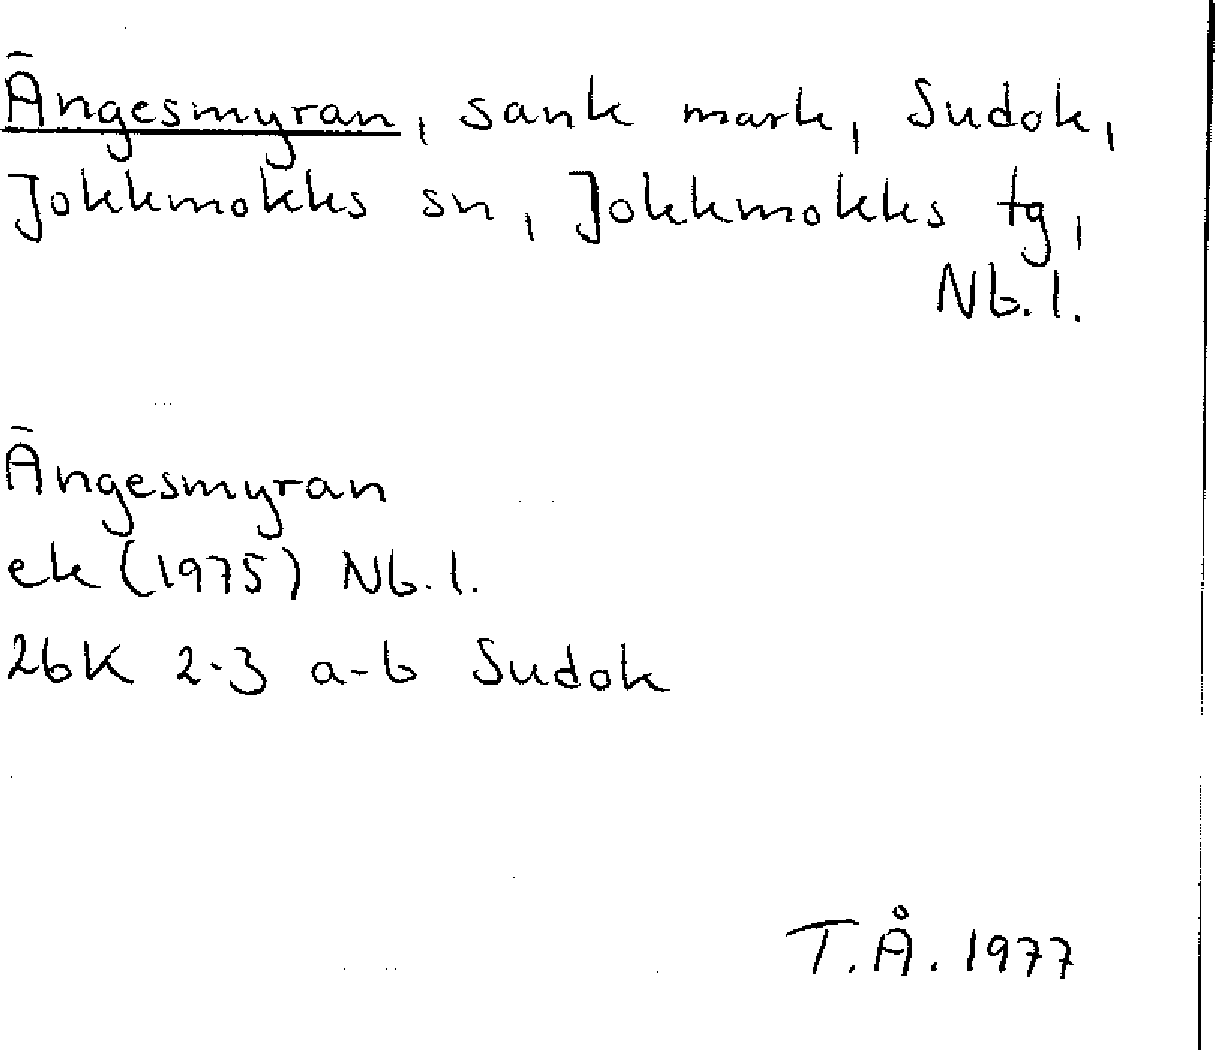 Ängesmyran, sank mark, Sudok,
Jokkmokks sn, Jokkmokks tg,
Nb. l.
Ängesmyran
ek (1975) Nb. l.
26K 2-3 a-b Sudok
T.Å. 1977